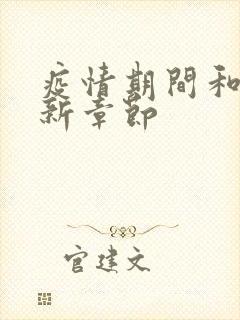 疫情期間和
新章節
官建文